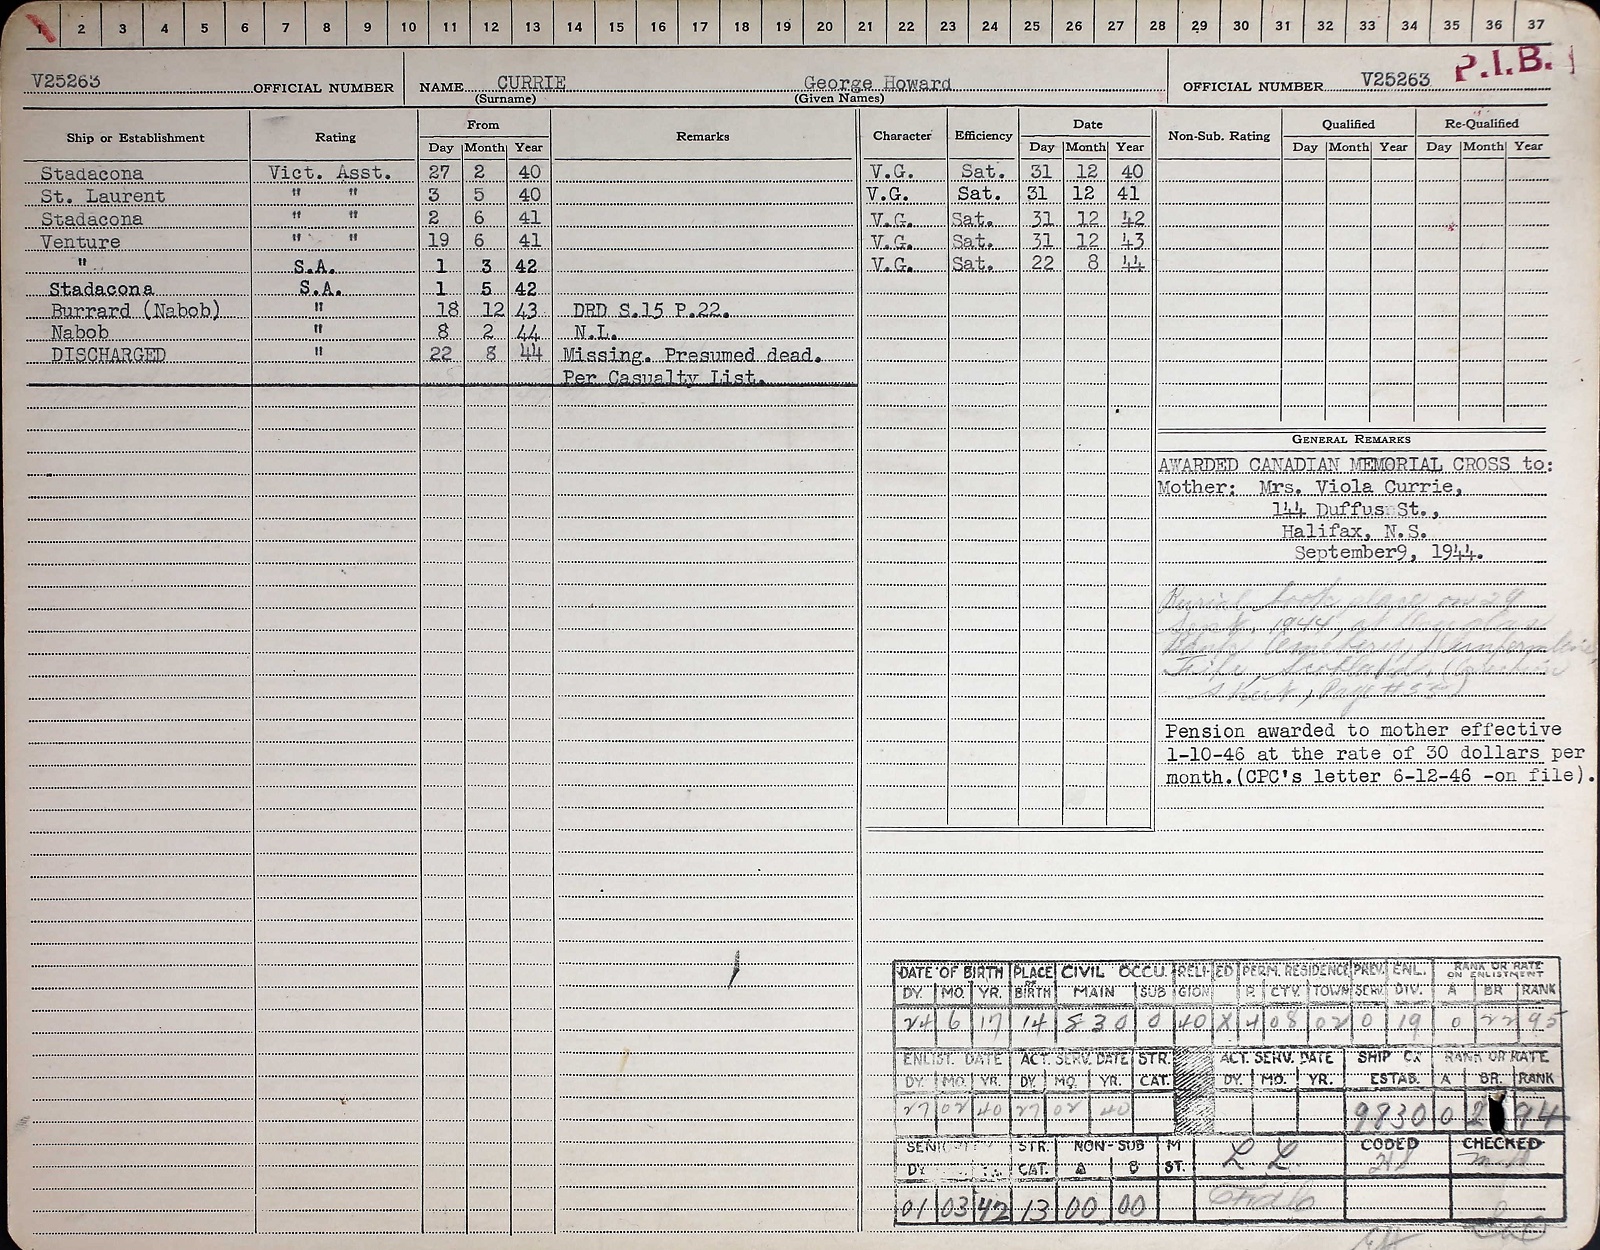 1 2 3 4 5 6 7 8 9 10 11 12 13 14 15 16 17 18 19 20 21 22 23 24 25 26 27 28 29 30 31 32 33 34 35 36 37
P.I.B.
V25263 OFFICIAL NUMBER NAME CURRIE George Howard OFFICIAL NUMBER V25263
(Surname) (Given Names)
Ship or Establishment Rating From Remarks Character Efficiency Date Non-Sub. Rating Qualified Re-Qualified
Day Month Year Day Month Year Day Month Year Day Month Year
Stadacona Vict. Asst. 27 2 40 V.G. Sat. 31 12 40
St. Laurent " " 3 5 40 V.G. Sat. 31 12 41
Stadacona " " 2 6 41 V.G. Sat. 31 12 42
Venture " " 19 6 41 V.G. Sat. 31 12 43
" S.A. 1 3 42 V.G. Sat. 22 8 44
Stadacona S.A. 1 5 42
Burrard (Nabob) " 18 12 43 DRD S.15 P.22.
Nabob " 8 2 44 N.L.
DISCHARGED " 22 8 44 Missing. Presumed dead.
Per Casualty List.
GENERAL REMARKS
AWARDED CANADIAN MEMORIAL CROSS to:
Mother: Mrs. Viola Currie,
144 Duffus St.,
Halifax, N.S.
September9, 1944.
Burial took place on 29
Sept. 1944, at Douglas
Bank Cemetery, Dunfermline,
Fife, Scotland. (
Sheet, Page #
Pension awarded to mother effective
1-10-46 at the rate of 30 dollars per
month.(CPC's letter 6-12-46 -on file).
DATE OF BIRTH PLACE OF BIRTH CIVIL OCCU. RELIGION ED PERM. RESIDENCE PREV. SERV. ENL. DIV. RANK OR RATE ON ENLISTMENT
DY. MO. YR. MAIN SUB P. CTY. TOWN A BR RANK
24 6 17 14 830 0 40 X 4 08 02 0 19 0 22 95
ENLIST. DATE ACT. SERV. DATE STR. ACT. SERV. DATE SHIP OR RANK OR RATE
DY. MO. YR. DY. MO. YR. CAT. DY. MO. YR. ESTAB. A BR. RANK
27 02 40 27 02 40 9830 0 2 94
SEN STR. NON-SUB M CODED CHECKED
DY. CAT. A B ST.
01 03 42 13 00 00